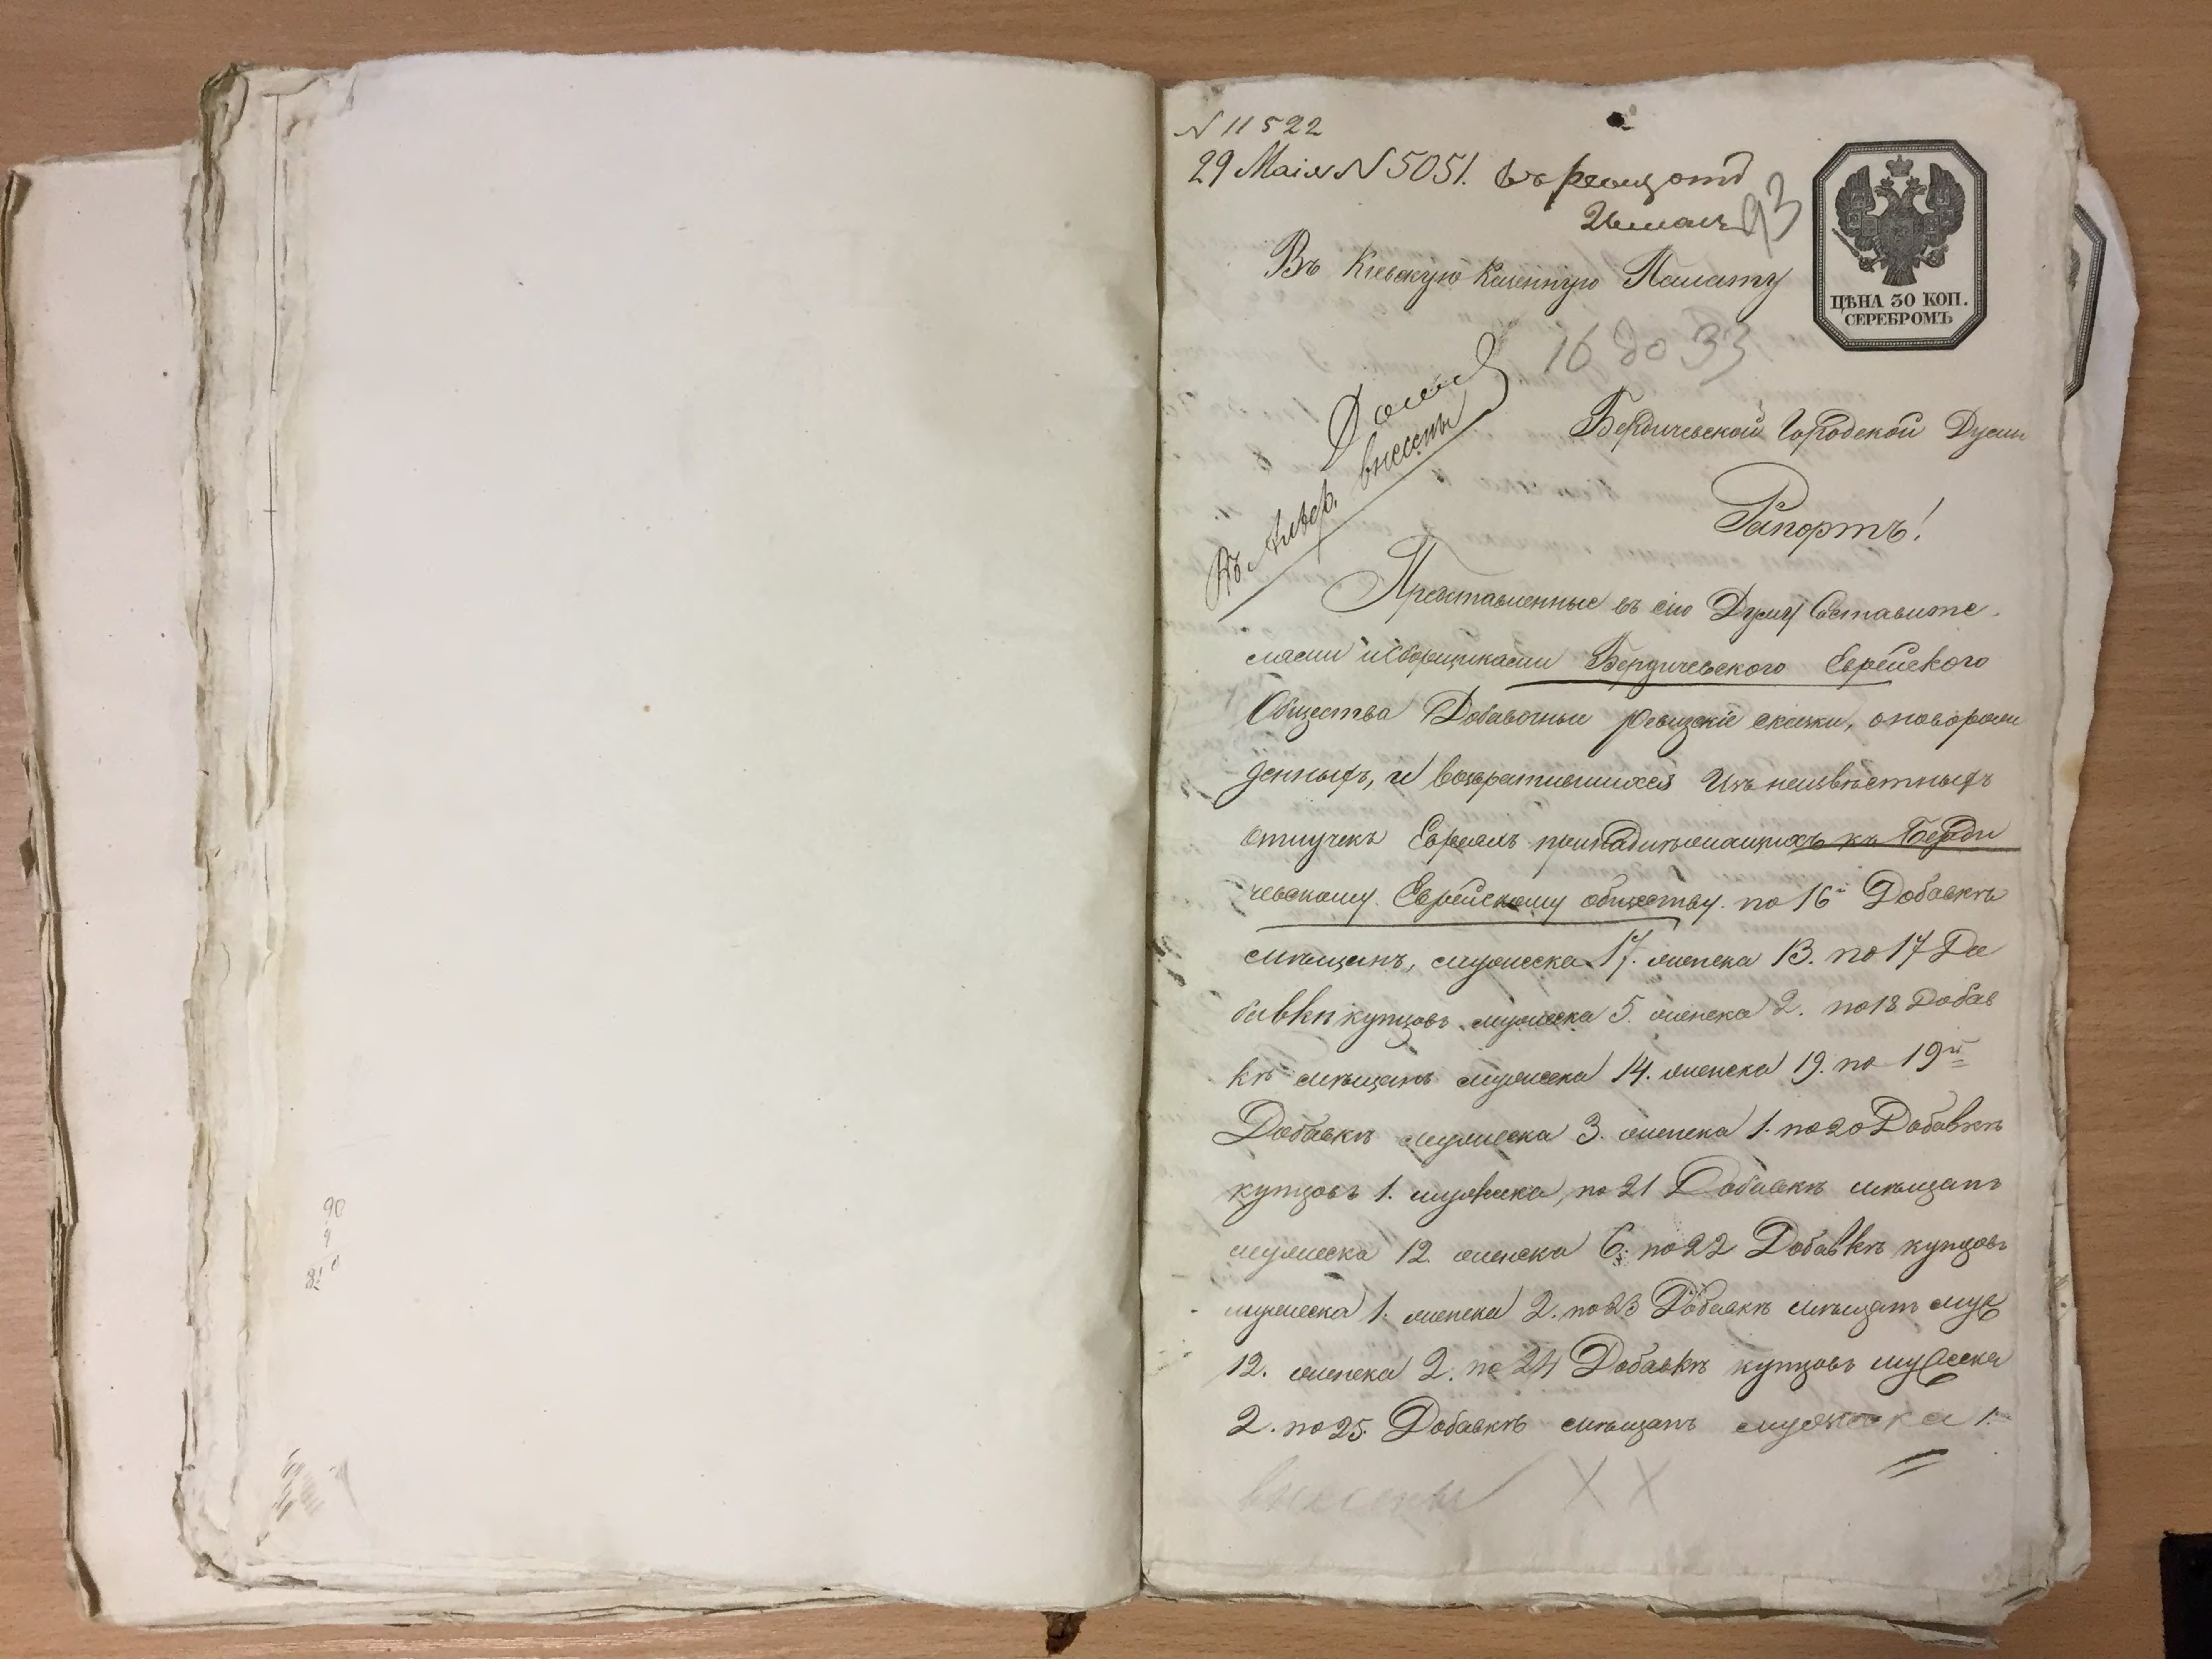 90
9
81 0
N 11522
29 Маія N 5051. въ ревиз отд
93
Въ Кіевскую Казенную Палату
ЦѢНА 30 КОП.
СЕРЕБРОМЪ
16 до 33
внесены
Бердичевской Городской Думы
Рапортъ!
Представленные въ сію Думу Составите
лями и Сборщиками Бердичевского Еврейского
Общества Добавочные ревизскіе сказки, о новорож
денныхъ, и возвратившихся изъ неизвѣстныхъ
отлучекъ Евреяхъ принадлѣжащихъ къ Берди
чевскому Еврейскому обществу. по 16й Добавкѣ
мѣщанъ, мужеска 17. женска 13. по 17 До
бавкѣ купцовъ мужеска 5. женска 2. по 18 Добав
кѣ мѣщанъ мужеска 14. женска 19. по 19й
Добавкѣ мужеска 3. женска 1. по 20 Добавкѣ
купцовъ 1. мужеска, по 21 Добавкѣ мѣщанъ
мужеска 12. женска 6. по 22 Добавкѣ купцовъ
мужеска 1. женска 2. по 23 Добавкѣ мѣщанъ муж
12. женска 2. по 24 Добавкѣ купцовъ мужеска
2. по 25. Добавкѣ мѣщанъ мужеска 1.
внесены XX